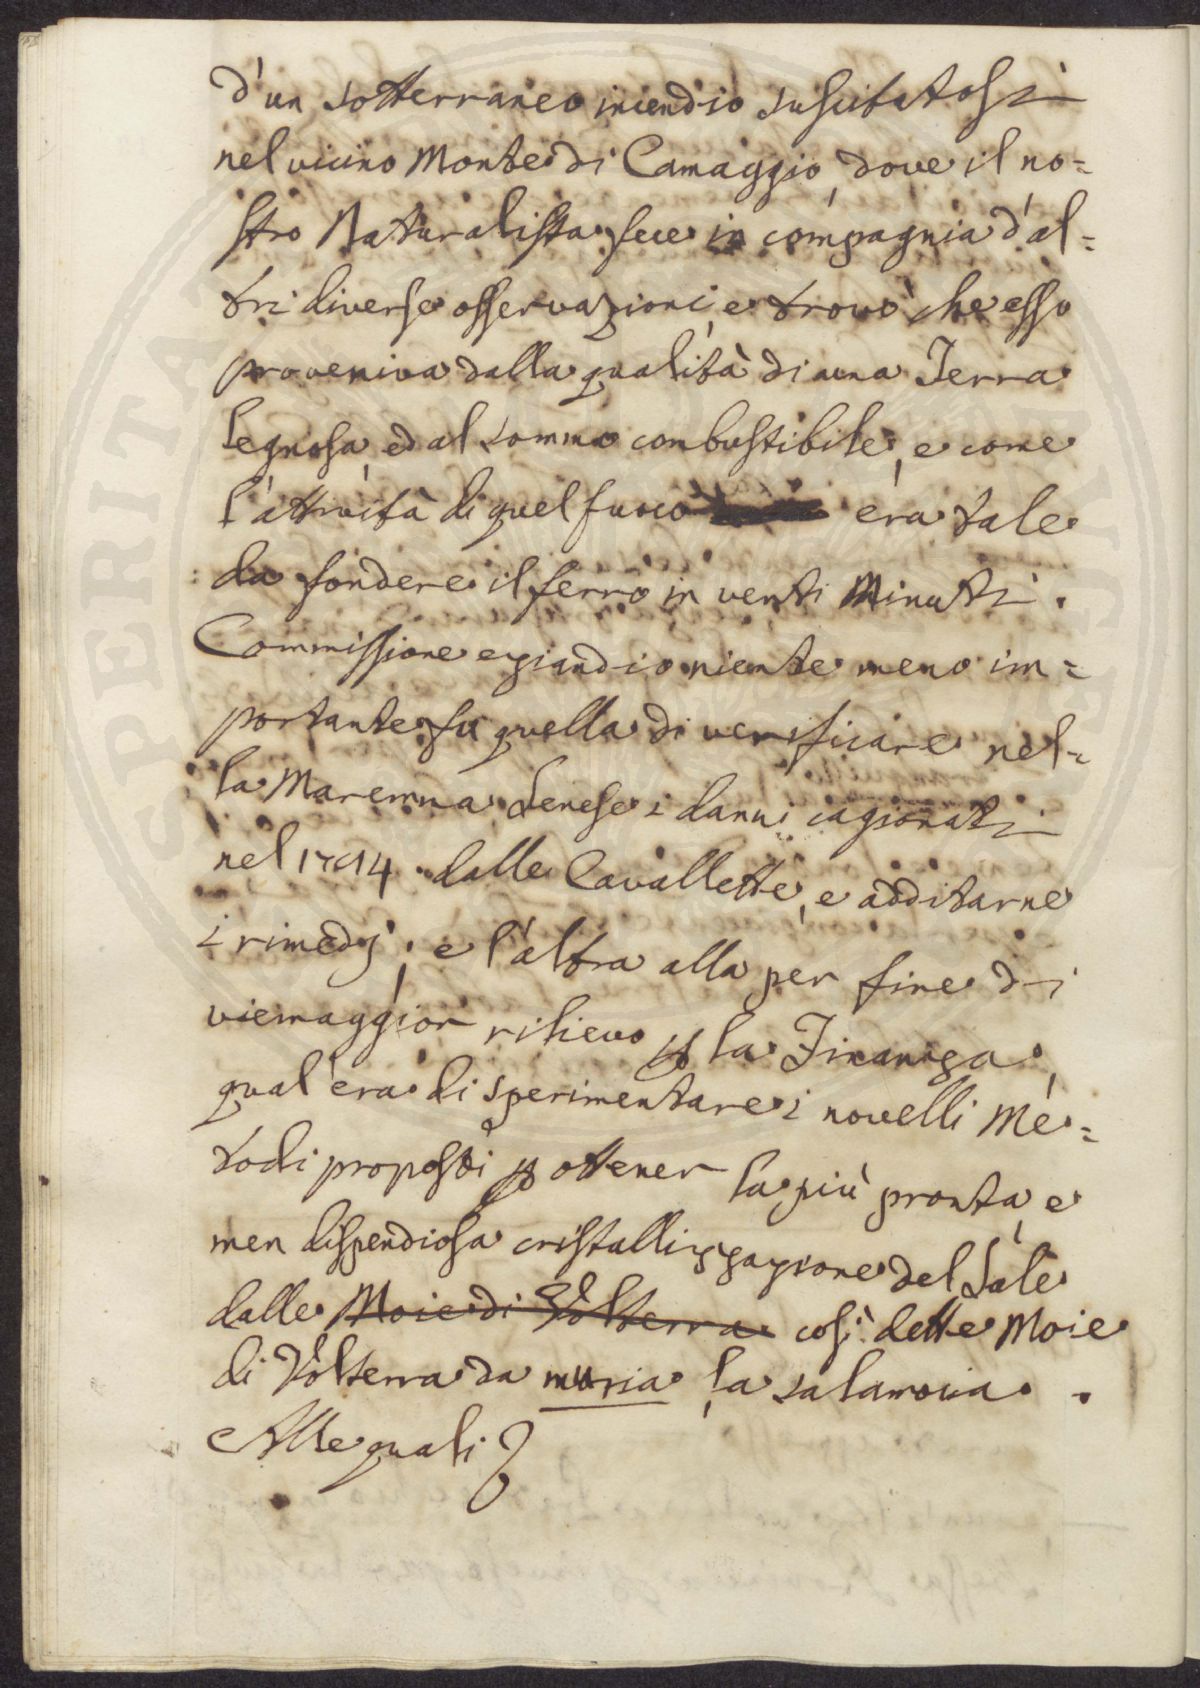 d'un sotterraneo incendio suscitatosi
nel vicino Monte di Camaggio, dove il no=
stro Naturalista fece in compagnia d'al=
tri diverse osservazioni, e trovò che esso
proveniva dalla qualità di una Terra
legnosa, ed al sommo combustibile, e come
l'attività di quel fuoco era tale
da fondere il ferro in venti Minuti.
Commissione eziandio niente meno im=
portante fu quella di verificare nel=
la Maremma Senese i danni cagionati
nel dalle Cavallette, e additarne
i rimedj; e l'altra alla per fine di
viemaggior rilievo p la Finanza,
qual era di sperimentare i novelli Me=
todi proposti p ottener la più pronta, e
men dispendiosa cristallizzazione del Sale
dalle Moie di Volterra così dette Moie
di Volterra da muria, la salamoia.
Alle quali